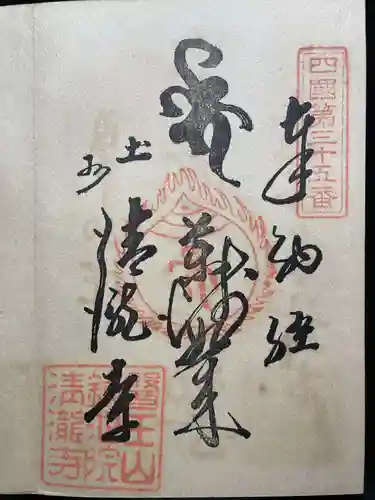 四國第三十五番
奉納経
薬師如来
土州
清瀧寺
醫王山
鏡池院
清瀧寺